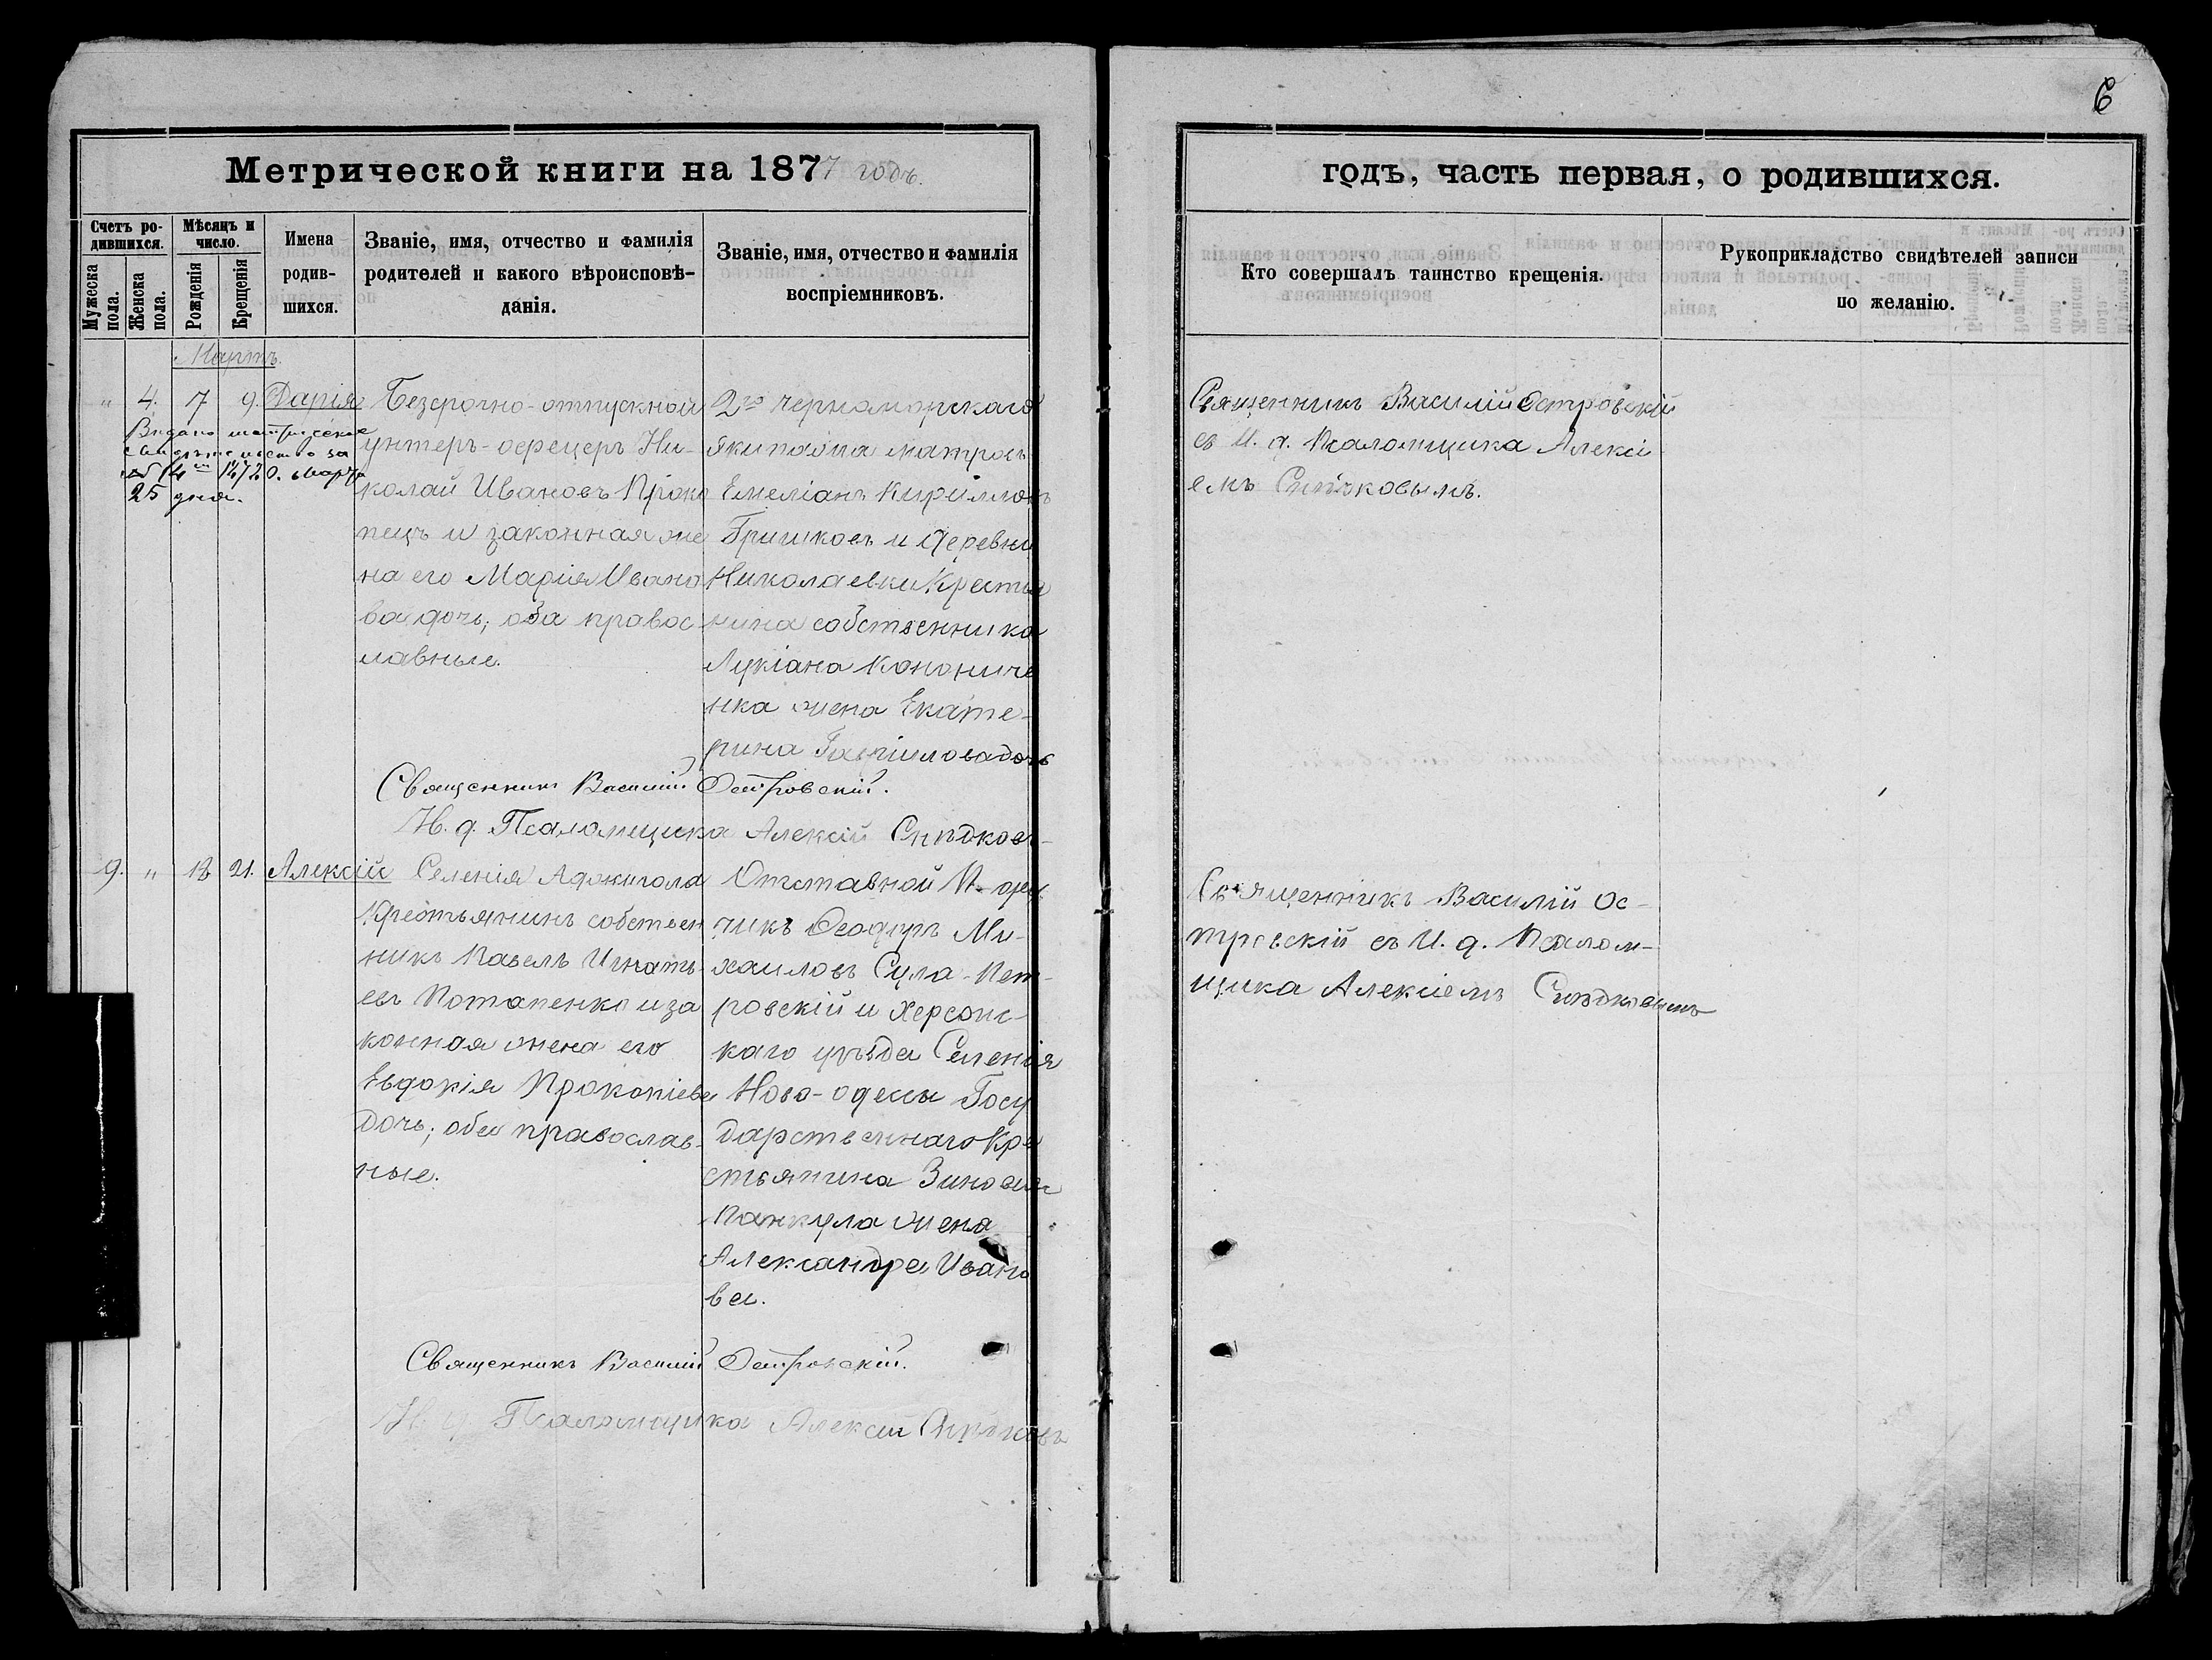 6
Метрической книги на 1877 годъ.
годъ, часть первая, о родившихся.
Счетъ ро-
дившихся.
Мужеска
пола.
Женска
пола.
Мѣсяцъ и
число.
Рожденія
Крещенія
Имена
родив-
шихся.
Званіе, имя, отчество и фамилія
родителей и какого вѣроисповѣ-
данія.
Званіе, имя, отчество и фамилія
воспріемниковъ.
Кто совершалъ таинство крещенія.
Рукоприкладство свидѣтелей записи
по желанію.
Мартъ.
" 4. 7 9. Дарія
Видано метрическое
свидѣтельство за
марта
25 дня.
Безсрочно-отпускной
унтеръ-офецеръ Ни-
колай Ивановъ Проко
пецъ и законная же
на его Марія Ивано
ва дочь; оба правос
лавные.
2го Черноморскаго
экипажа матросъ
Емеліанъ Кирилловъ
Гришковъ и деревни
Николаевки Крестья
нина собственника
Лукіана Конониче
нка жена Екате-
рина Гавріиловадочь
Священникъ Василій Островскій
съ И. д. Псаломщика Алексі
емъ Снѣдковымъ.
Священникъ Василій Островскій.
И. д. Псаломщика Алексій Снѣдковъ
9. " 18 21. Алексій
Селенія Аджигола
Крестьянинъ собствен
никъ Павелъ Игнать
евъ Потапенко и за
конная жена его
Евдокія Прокопіева
дочь; оба православ-
ные.
Отставной
чикъ Ѳеодоръ Ми-
хаиловъ Сула-Пет-
ровскій и Херсонс-
каго уѣзда Селенія
Ново-одессы Госу
дарственнаго Кре
стьянина Зиновія
Панкула жена
Александра Ивано
ва.
Священникъ Василій Ос-
тровскій съ И. д. Псалом-
щика Алексіемъ Снѣдковымъ
Священникъ Василій Островскій.
И. д. Псаломщика Алексій Снѣдковъ